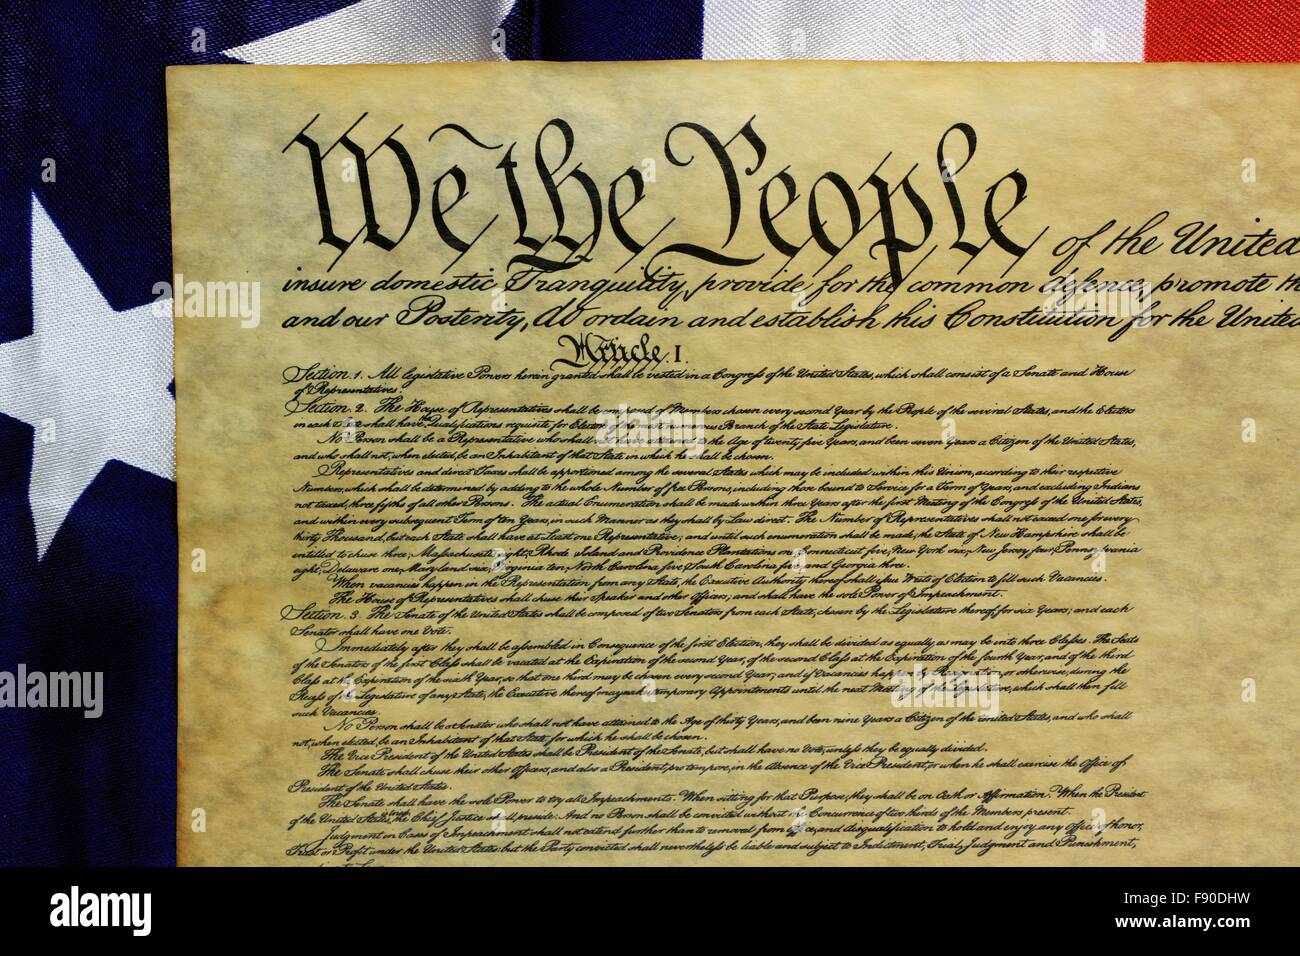 We the People of the United
insure domestic Tranquility, provide for the common defence, promote th
and our Posterity, do ordain and establish this Constitution for the United
Article. I.
Section. 1. All legislative Powers herein granted shall be vested in a Congress of the United States, which shall consist of a Senate and House
of Representatives.
Section. 2. The House of Representatives shall be composed of Members chosen every second Year by the People of the several States, and the Electors
in each State shall have the Qualifications requisite for Electors of the most numerous Branch of the State Legislature.
No Person shall be a Representative who shall not have attained to the Age of twenty five Years, and been seven Years a Citizen of the United States,
and who shall not, when elected, be an Inhabitant of that State in which he shall be chosen.
Representatives and direct Taxes shall be apportioned among the several States which may be included within this Union, according to their respective
Numbers, which shall be determined by adding to the whole Number of free Persons, including those bound to Service for a Term of Years, and excluding Indians
not taxed, three fifths of all other Persons. The actual Enumeration shall be made within three Years after the first Meeting of the Congress of the United States,
and within every subsequent Term of ten Years, in such Manner as they shall by Law direct. The Number of Representatives shall not exceed one for every
thirty Thousand, but each State shall have at Least one Representative; and until such enumeration shall be made, the State of New Hampshire shall be
entitled to chuse three, Massachusetts eight, Rhode Island and Providence Plantations one, Connecticut five, New York six, New Jersey four, Pennsylvania
eight, Delaware one, Maryland six, Virginia ten, North Carolina five, South Carolina five, and Georgia three.
When vacancies happen in the Representation from any State, the Executive Authority thereof shall issue Writs of Election to fill such Vacancies.
The House of Representatives shall chuse their Speaker and other Officers; and shall have the sole Power of Impeachment.
Section. 3. The Senate of the United States shall be composed of two Senators from each State, chosen by the Legislature thereof, for six Years; and each
Senator shall have one Vote.
Immediately after they shall be assembled in Consequence of the first Election, they shall be divided as equally as may be into three Classes. The Seats
of the Senators of the first Class shall be vacated at the Expiration of the second Year, of the second Class at the Expiration of the fourth Year, and of the third
Class at the Expiration of the sixth Year, so that one third may be chosen every second Year; and if Vacancies happen by Resignation, or otherwise, during the
Recess of the Legislature of any State, the Executive thereof may make temporary Appointments until the next Meeting of the Legislature, which shall then fill
such Vacancies.
No Person shall be a Senator who shall not have attained to the Age of thirty Years, and been nine Years a Citizen of the United States, and who shall
not, when elected, be an Inhabitant of that State for which he shall be chosen.
The Vice President of the United States shall be President of the Senate, but shall have no Vote, unless they be equally divided.
The Senate shall chuse their other Officers, and also a President pro tempore, in the Absence of the Vice President, or when he shall exercise the Office of
President of the United States.
The Senate shall have the sole Power to try all Impeachments. When sitting for that Purpose, they shall be on Oath or Affirmation. When the President
of the United States is tried, the Chief Justice shall preside: And no Person shall be convicted without the Concurrence of two thirds of the Members present.
Judgment in Cases of Impeachment shall not extend further than to removal from Office, and disqualification to hold and enjoy any Office of honor,
Trust or Profit under the United States: but the Party convicted shall nevertheless be liable and subject to Indictment, Trial, Judgment and Punishment,
alamy
Image ID: F90DHW
www.alamy.com